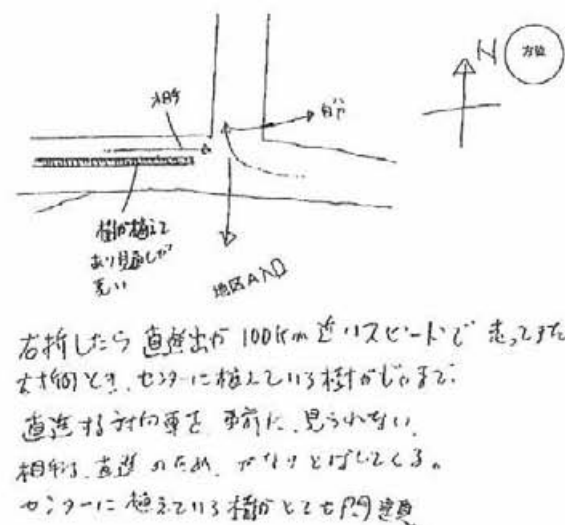 方位
N
相手
自分
樹が植えて
あり見通しが
悪い
地区入口
右折したら直進出が100km近いスピードで走ってきた
右折のとき、センターに植えている樹がじゃまで、
直進する対向車を事前に、見られない。
相手は、直進のため、かなりとばしてくる。
センターに植えている樹がとても問題